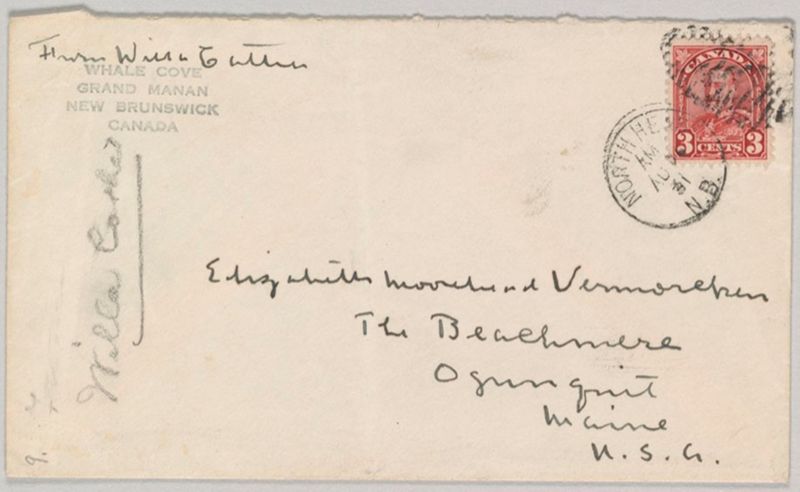 From Willa Cather
WHALE COVE
GRAND MANAN
NEW BRUNSWICK
CANADA
Willa Cather
CANADA
3 CENTS 3
NORTH HE
AM
AU
31
N.B.
Elizabeth Moorhead Vermorcken
The Beachmere
Ogunquit
Maine
U.S.A.
9.